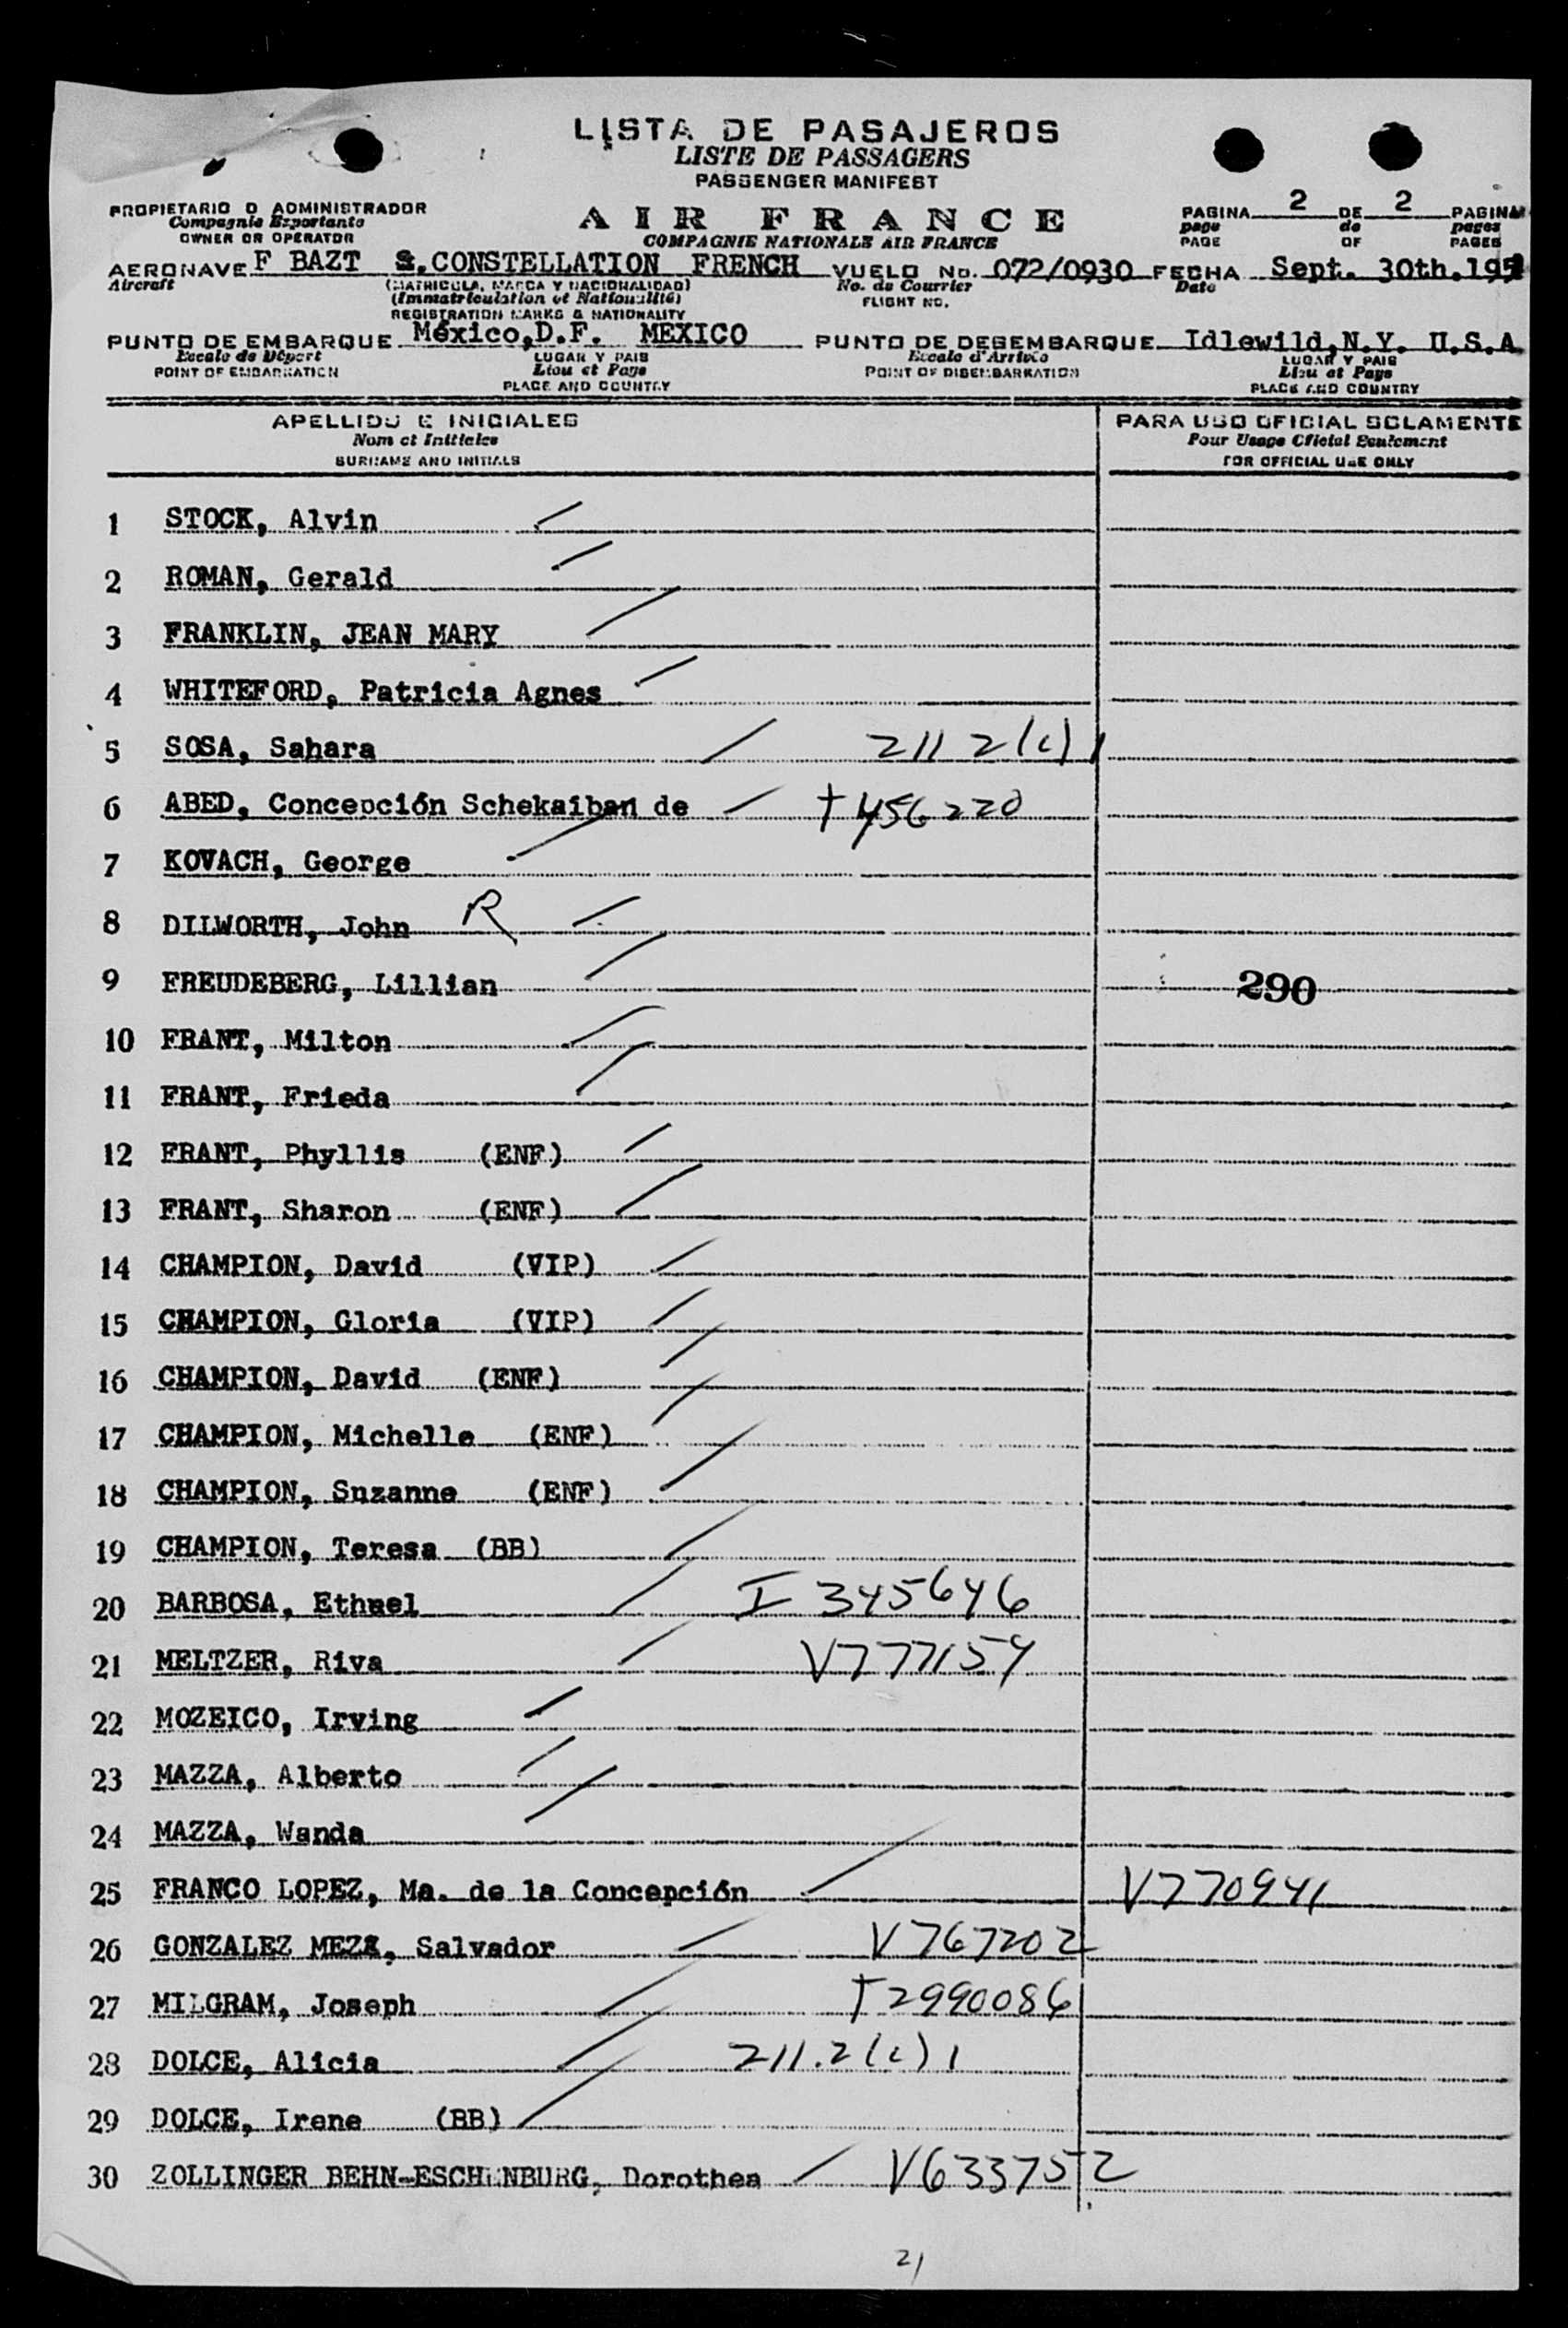 LISTA DE PASAJEROS
LISTE DE PASSAGERS
PASSENGER MANIFEST
PROPIETARIO O ADMINISTRADOR
Compagnie Exportante
OWNER OR OPERATOR
AIR FRANCE
COMPAGNIE NATIONALE AIR FRANCE
PAGINA 2 DE 2 PAGINAS
page de pages
PAGE OF PAGES
AERONAVE F BAZT S.CONSTELLATION FRENCH VUELO No. 072/0930 FECHA Sept. 30th.195
Aircraft (MATRICULA, MARCA Y NACIONALIDAD) No. de Courrier Date
(Immatriculation et Nationalité) FLIGHT NO.
REGISTRATION MARKS & NATIONALITY
PUNTO DE EMBARQUE México,D.F. MEXICO PUNTO DE DESEMBARQUE Idlewild,N.Y. U.S.A
Escale de Départ LUGAR Y PAIS Escale d'Arrivée LUGAR Y PAIS
POINT OF EMBARKATION Lieu et Pays POINT OF DISEMBARKATION Lieu et Pays
PLACE AND COUNTRY PLACE AND COUNTRY
APELLIDO E INICIALES PARA USO OFICIAL SOLAMENTE
Nom et Initiales Pour Usage Oficiel Seulement
SURNAME AND INITIALS FOR OFFICIAL USE ONLY
1 STOCK, Alvin
2 ROMAN, Gerald
3 FRANKLIN, JEAN MARY
4 WHITEFORD, Patricia Agnes
5 SOSA, Sahara 211 2(c) 1
6 ABED, Concepción Schekaiban de T 456220
7 KOVACH, George
8 DILWORTH, John R
9 FREUDEBERG, Lillian 290
10 FRANT, Milton
11 FRANT, Frieda
12 FRANT, Phyllis (ENF)
13 FRANT, Sharon (ENF)
14 CHAMPION, David (VIP)
15 CHAMPION, Gloria (VIP)
16 CHAMPION, David (ENF)
17 CHAMPION, Michelle (ENF)
18 CHAMPION, Suzanne (ENF)
19 CHAMPION, Teresa (BB)
20 BARBOSA, Ethuel I 345646
21 MELTZER, Riva V777159
22 MOZEICO, Irving
23 MAZZA, Alberto
24 MAZZA, Wanda
25 FRANCO LOPEZ, Ma. de la Concepción V770941
26 GONZALEZ MEZA, Salvador V767202
27 MILGRAM, Joseph T2990086
28 DOLCE, Alicia 211.2(c) 1
29 DOLCE, Irene (BB)
30 ZOLLINGER BEHN-ESCHENBURG, Dorothea V633752
21